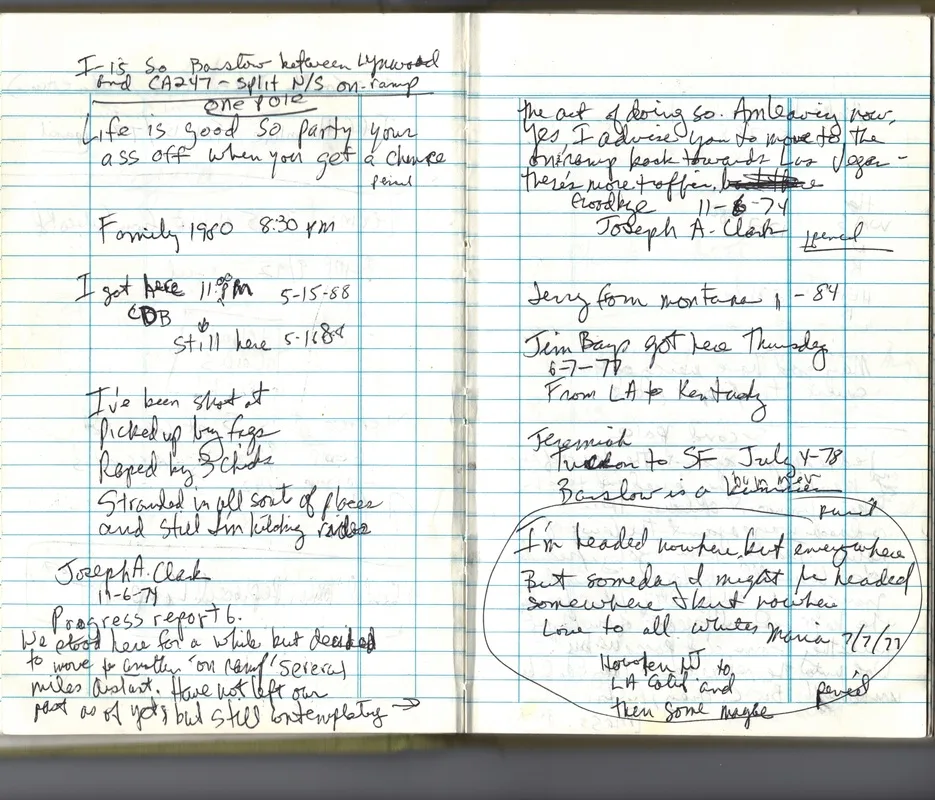 I-15 So Barstow between Lynwood
and CA247 - split N/S on-ramp
one pole
Life is good so party your
ass off when you get a chance
pencil
Family 1980 8:30 pm
I got here 11: pm 5-15-88
CDB
Still here 5-16 88
I've been shot at
Picked up by fags
Raped by 3 chicks
Stranded in all sorts of places
and still I'm hitching rides
Joseph A. Clark
11-6-74
Progress report 6.
We stood here for a while but decided
to move to another 'on ramp' several
miles distant. Have not left our
post as of yet, but still contemplating →
the act of doing so. Am leaving now,
Yes, I advise you to move to the
on-ramp back towards Las Vegas -
there's more traffic.
Goodbye 11-6-74
Joseph A. Clark pencil
Jerry from montana 11 - 84
Jim Bays got here Thursday
6-7-77
From LA to Kentucky
Jeremiah
Tucson to SF July 4-78
bummer
Barstow is a
pencil
I'm headed nowhere, but everywhere
But someday I might be headed
somewhere but nowhere
Love to all whites Maria 7/7/77
NJ to
LA Calif and
then some maybe
pencil